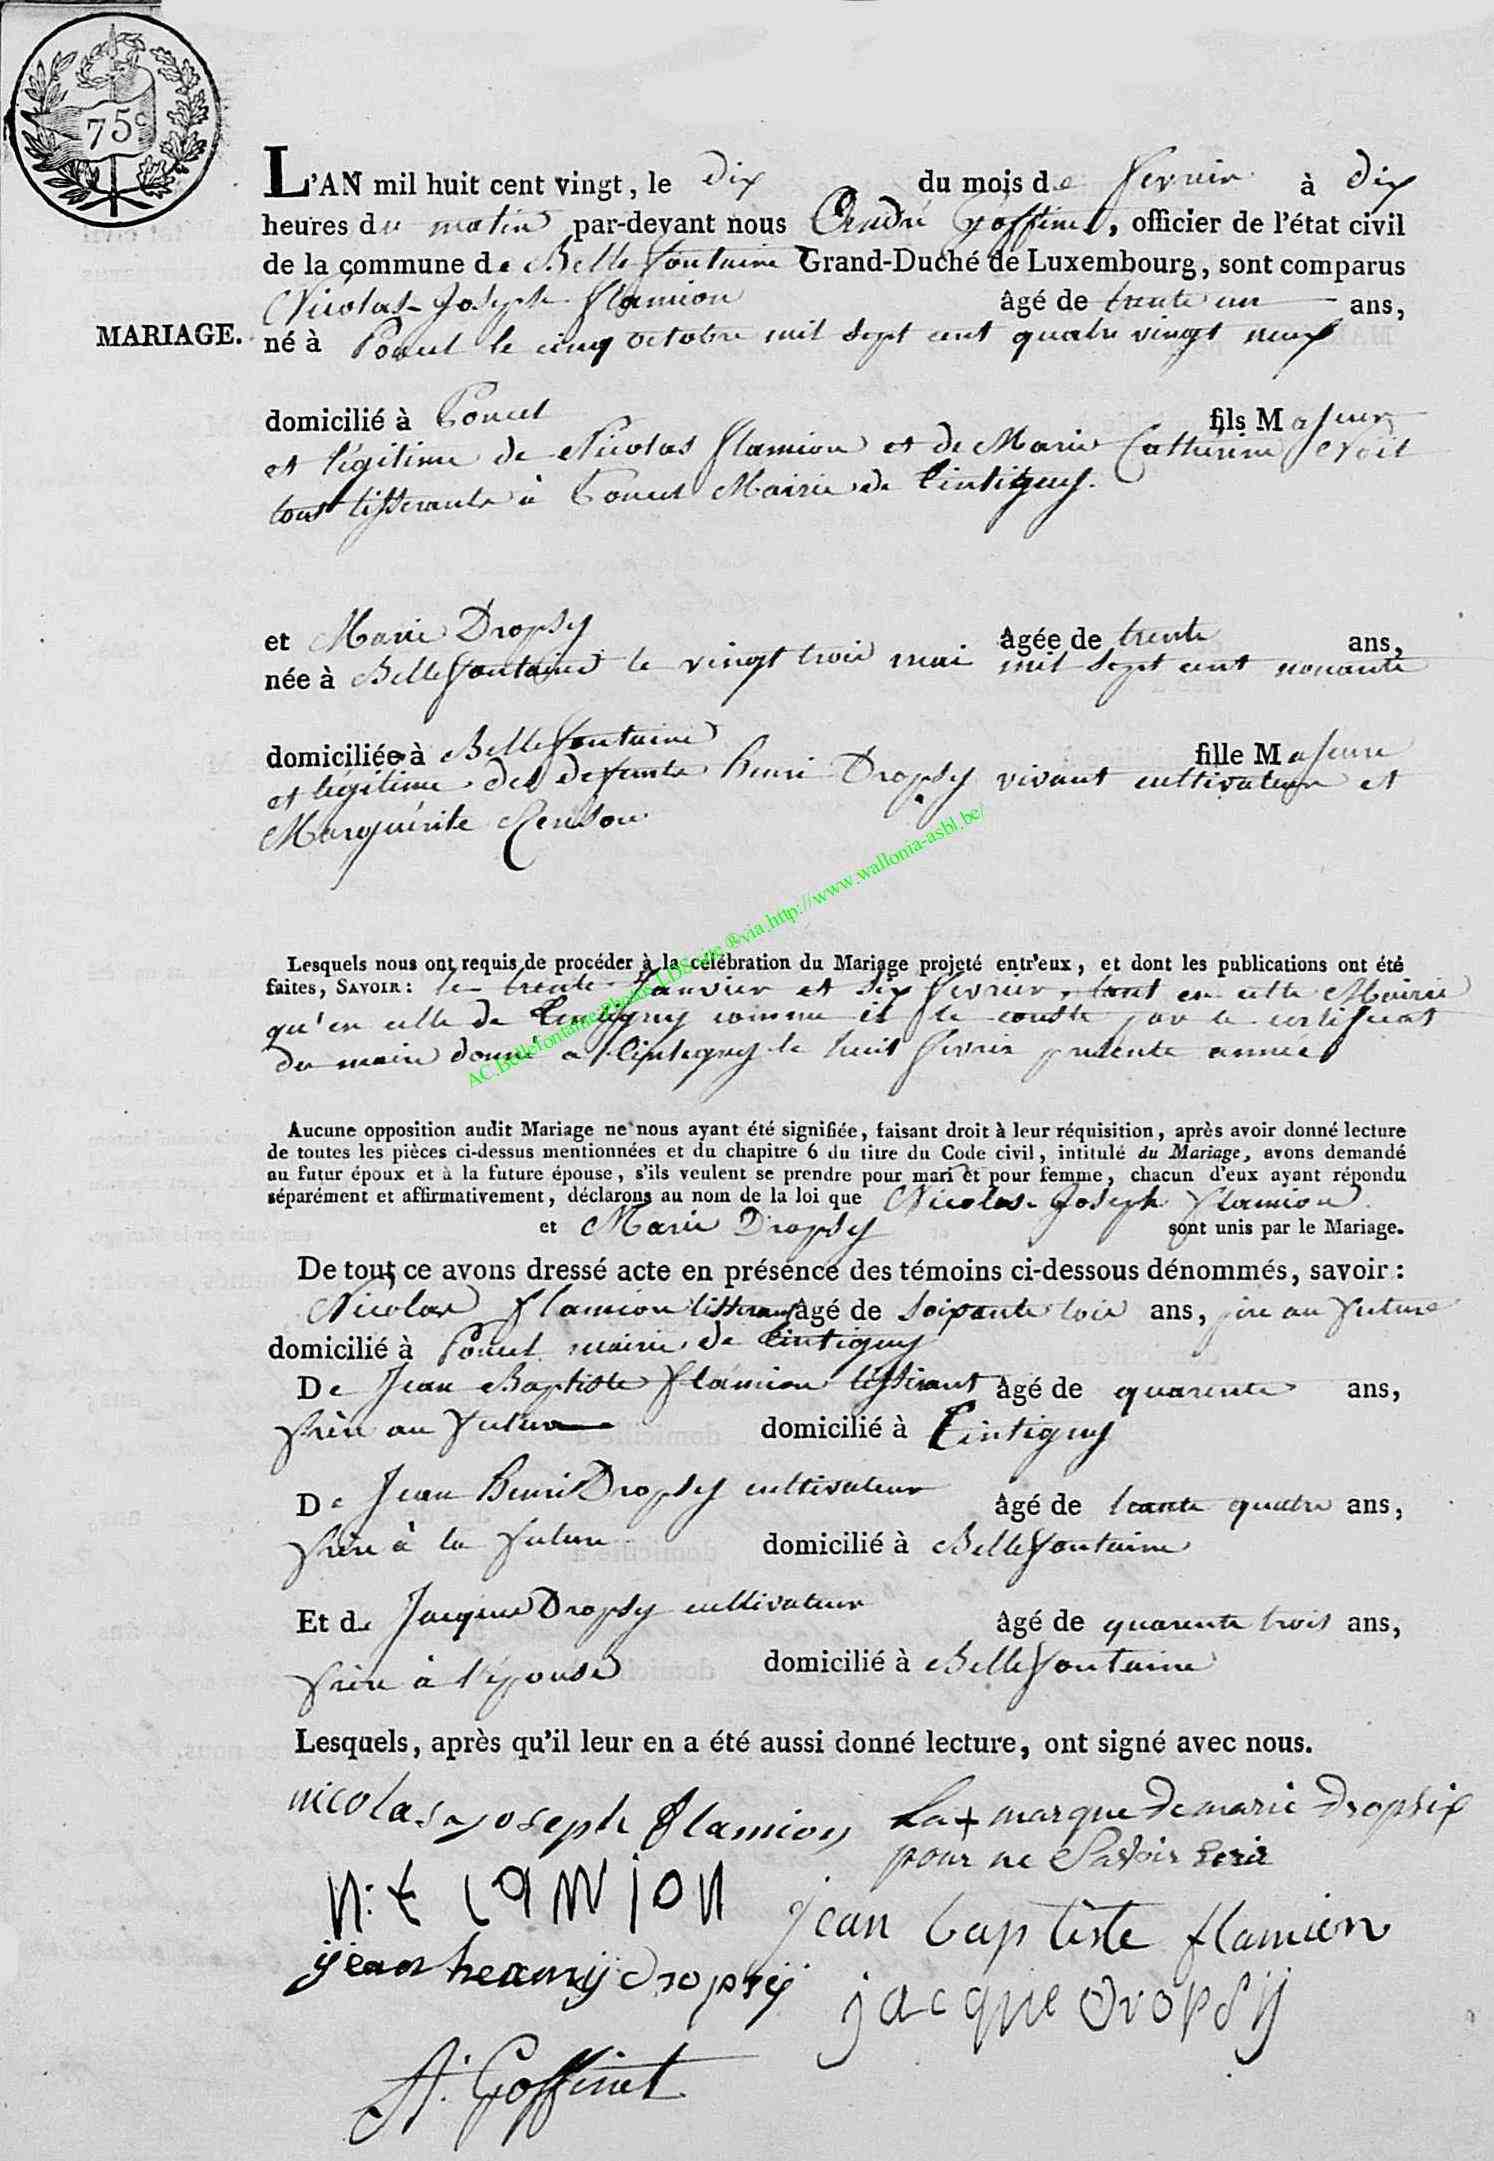 75c
L'AN mil huit cent vingt, le dix du mois de fevrier à dix
heures du matin par-devant nous André Goffinet, officier de l'état civil
de la commune de Bellefontaine Grand-Duché de Luxembourg, sont comparus
Nicolas-Joseph flamion âgé de trente un ans,
MARIAGE. né à Poncel le cinq octobre mil sept cent quatre vingt neuf
domicilié à Poncel fils Majeur
et légitime de Nicolas flamion et de Marie Catherine
tous tisserants à Poncel Mairie de tintigny.
et Marie Dropsy âgée de trente ans,
née à Bellefontaine le vingt trois mai mil sept cent nonante
domiciliée à Bellefontaine fille Majeure
et légitime des defunts henri Dropsy vivant cultivateur et
Marguérite
Lesquels nous ont requis de procéder à la célébration du Mariage projeté entr'eux, et dont les publications ont été
faites, SAVOIR: le trente Janvier et six fevrier, tant en cette Mairie
qu'en celle de tintigny comme il le conste par le certificat
du maire donné a tintigny le huit fevrier présente année
AC.Bellefontaine Photos LDS site ®via.http://www.wallonia-asbl.be/
Aucune opposition audit Mariage ne nous ayant été signifiée, faisant droit à leur réquisition, après avoir donné lecture
de toutes les pièces ci-dessus mentionnées et du chapitre 6 du titre du Code civil, intitulé du Mariage, avons demandé
au futur époux et à la future épouse, s'ils veulent se prendre pour mari et pour femme, chacun d'eux ayant répondu
séparément et affirmativement, déclarons au nom de la loi que Nicolas-Joseph flamion
et Marie Dropsy sont unis par le Mariage.
De tout ce avons dressé acte en présence des témoins ci-dessous dénommés, savoir:
Nicolas flamion tisserant âgé de soixante tois ans, père au future
domicilié à Poncel mairie de tintigny
De Jean Baptiste flamion tisserant âgé de quarente ans,
frère au futur domicilié à tintigny
De Jean henri Dropsy cultivateur âgé de trante quatre ans,
frère à la future domicilié à Bellefontaine
Et de Jacques Dropsy cultivateur âgé de quarente trois ans,
frère à l'épouse domicilié à Bellefontaine
Lesquels, après qu'il leur en a été aussi donné lecture, ont signé avec nous.
nicolas joseph flamion La + marque de marie dropsix
pour ne Savoir
jean baptiste flamion
jean henrij dropsij
jacque dropsij
A. Goffinet